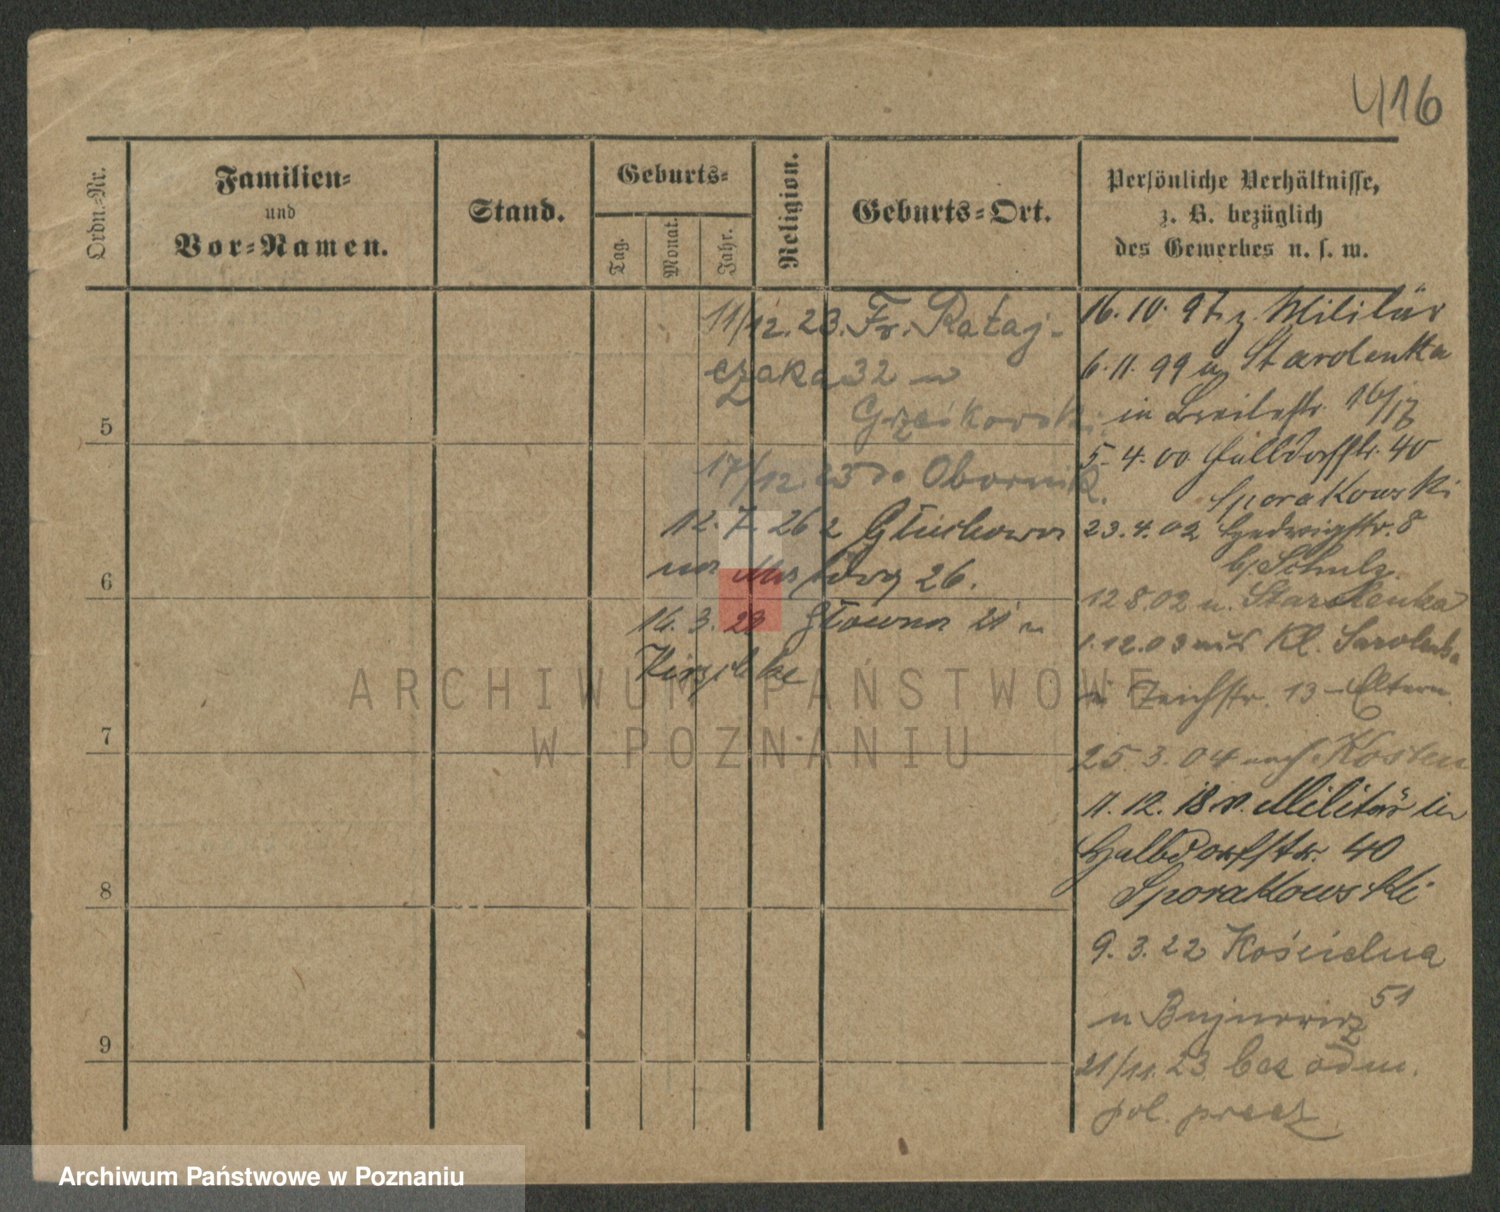 416
Ordn.-Nr.
Familien-
und
Vor-Namen.
Stand.
Geburts-
Tag.
Monat.
Jahr.
Religion.
Geburts-Ort.
Persönliche Verhältnisse,
z. B. bezüglich
des Gewerbes u. s. w.
11/12. 23. Fr. Rataj-
czaka 32 u
Grześkowski
17/12. 23 do Obornik.
12. 7. 26 z Głuchowa
na
26.
14. 3. 29 Główna 21 u
5
6
7
8
9
16. 10. 97 z. Militär
6. 11. 99 Starolenka
in Breitestr. 16/17
5. 4. 00 Halbdorfstr. 40
Sporakowski
23. 4. 02 Hedwigstr. 8
b/ Schulz.
12 8. 02 n. Starolenka
1. 12. 03 aus Kl. Starolenka
in Teichstr. 13 - Eltern.
25. 3. 04 nach Kosten
11. 12. 18 v. Militär in
Halbdorfstr. 40
Sporakowski
9. 3. 22 Kościelna
51
u Bujnowicz
21/11. 23 bez odm.
pol. precz
ARCHIWUM PAŃSTWOWE
W POZNANIU
Archiwum Państwowe w Poznaniu